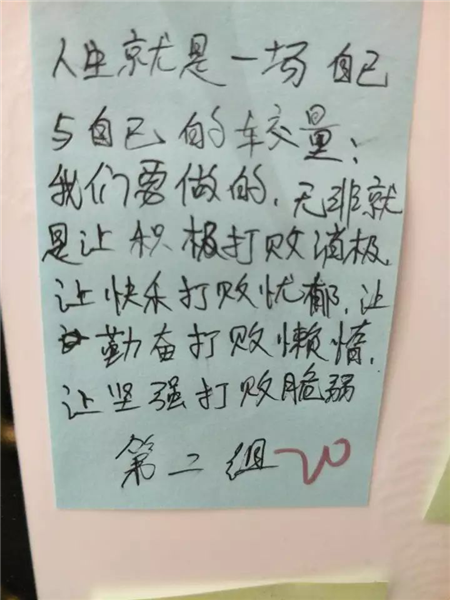 人生就是一场自己
与自己的较量:
我们要做的,无非就
是让积极打败消极,
让快乐打败忧郁,让
勤奋打败懒惰,
让坚强打败脆弱
第二组 20